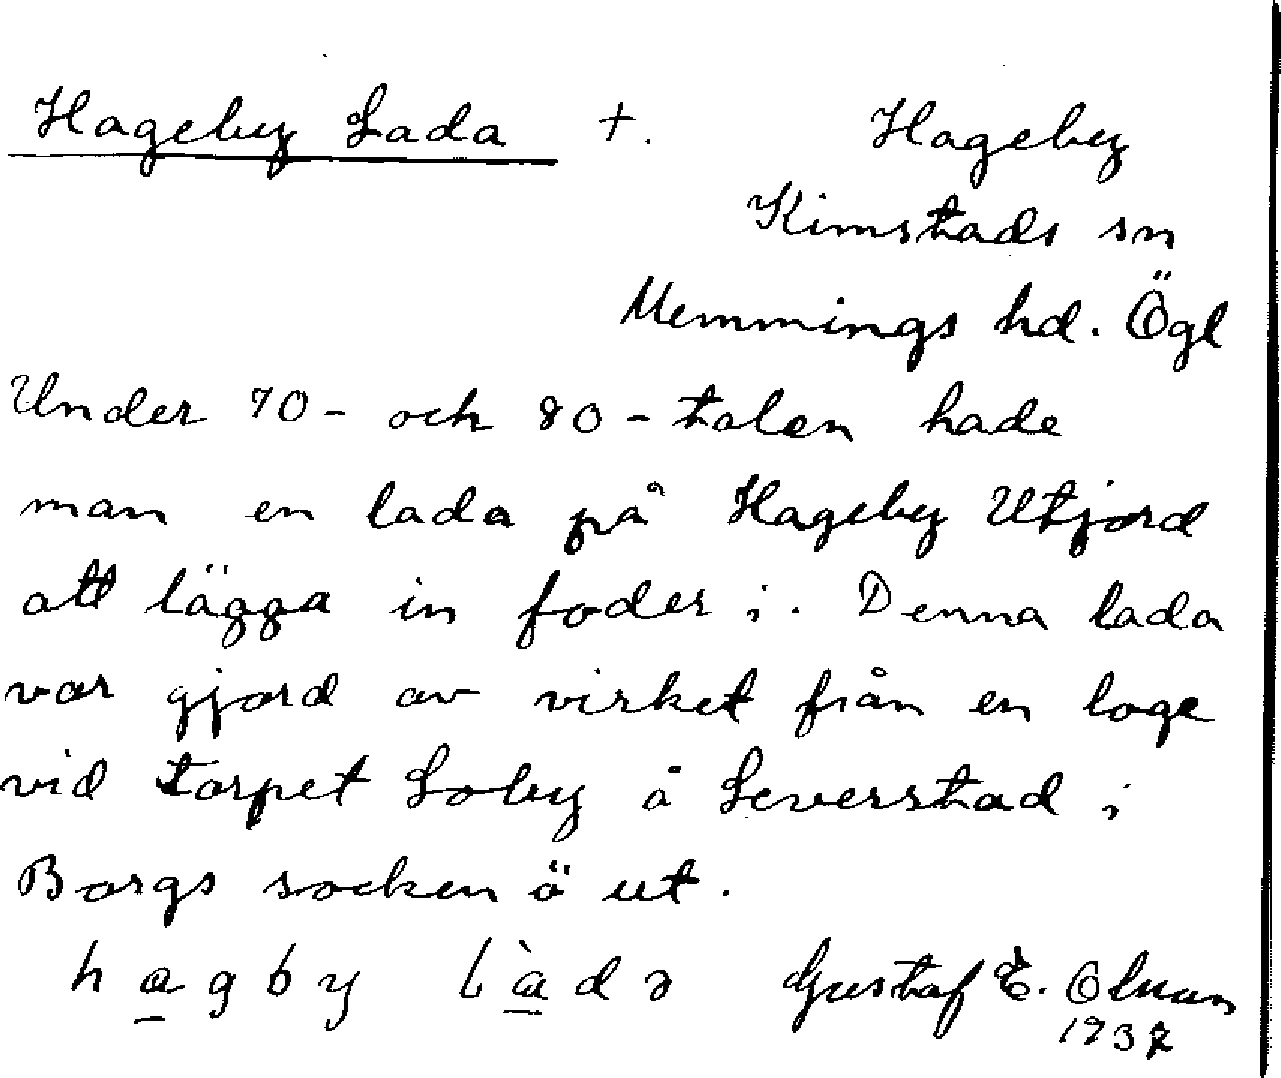 Hageby Lada +. Hageby
Kimstads sn
Memmings hd. Ögl
Under 70- och 80-talen hade
man en lada på Hageby Utjord
att lägga in foder i. Denna lada
var gjord av virket från en loge
vid torpet Loby å Leverstad i
Borgs socken ö ut.
hagby làda Gustaf E. Olman
193